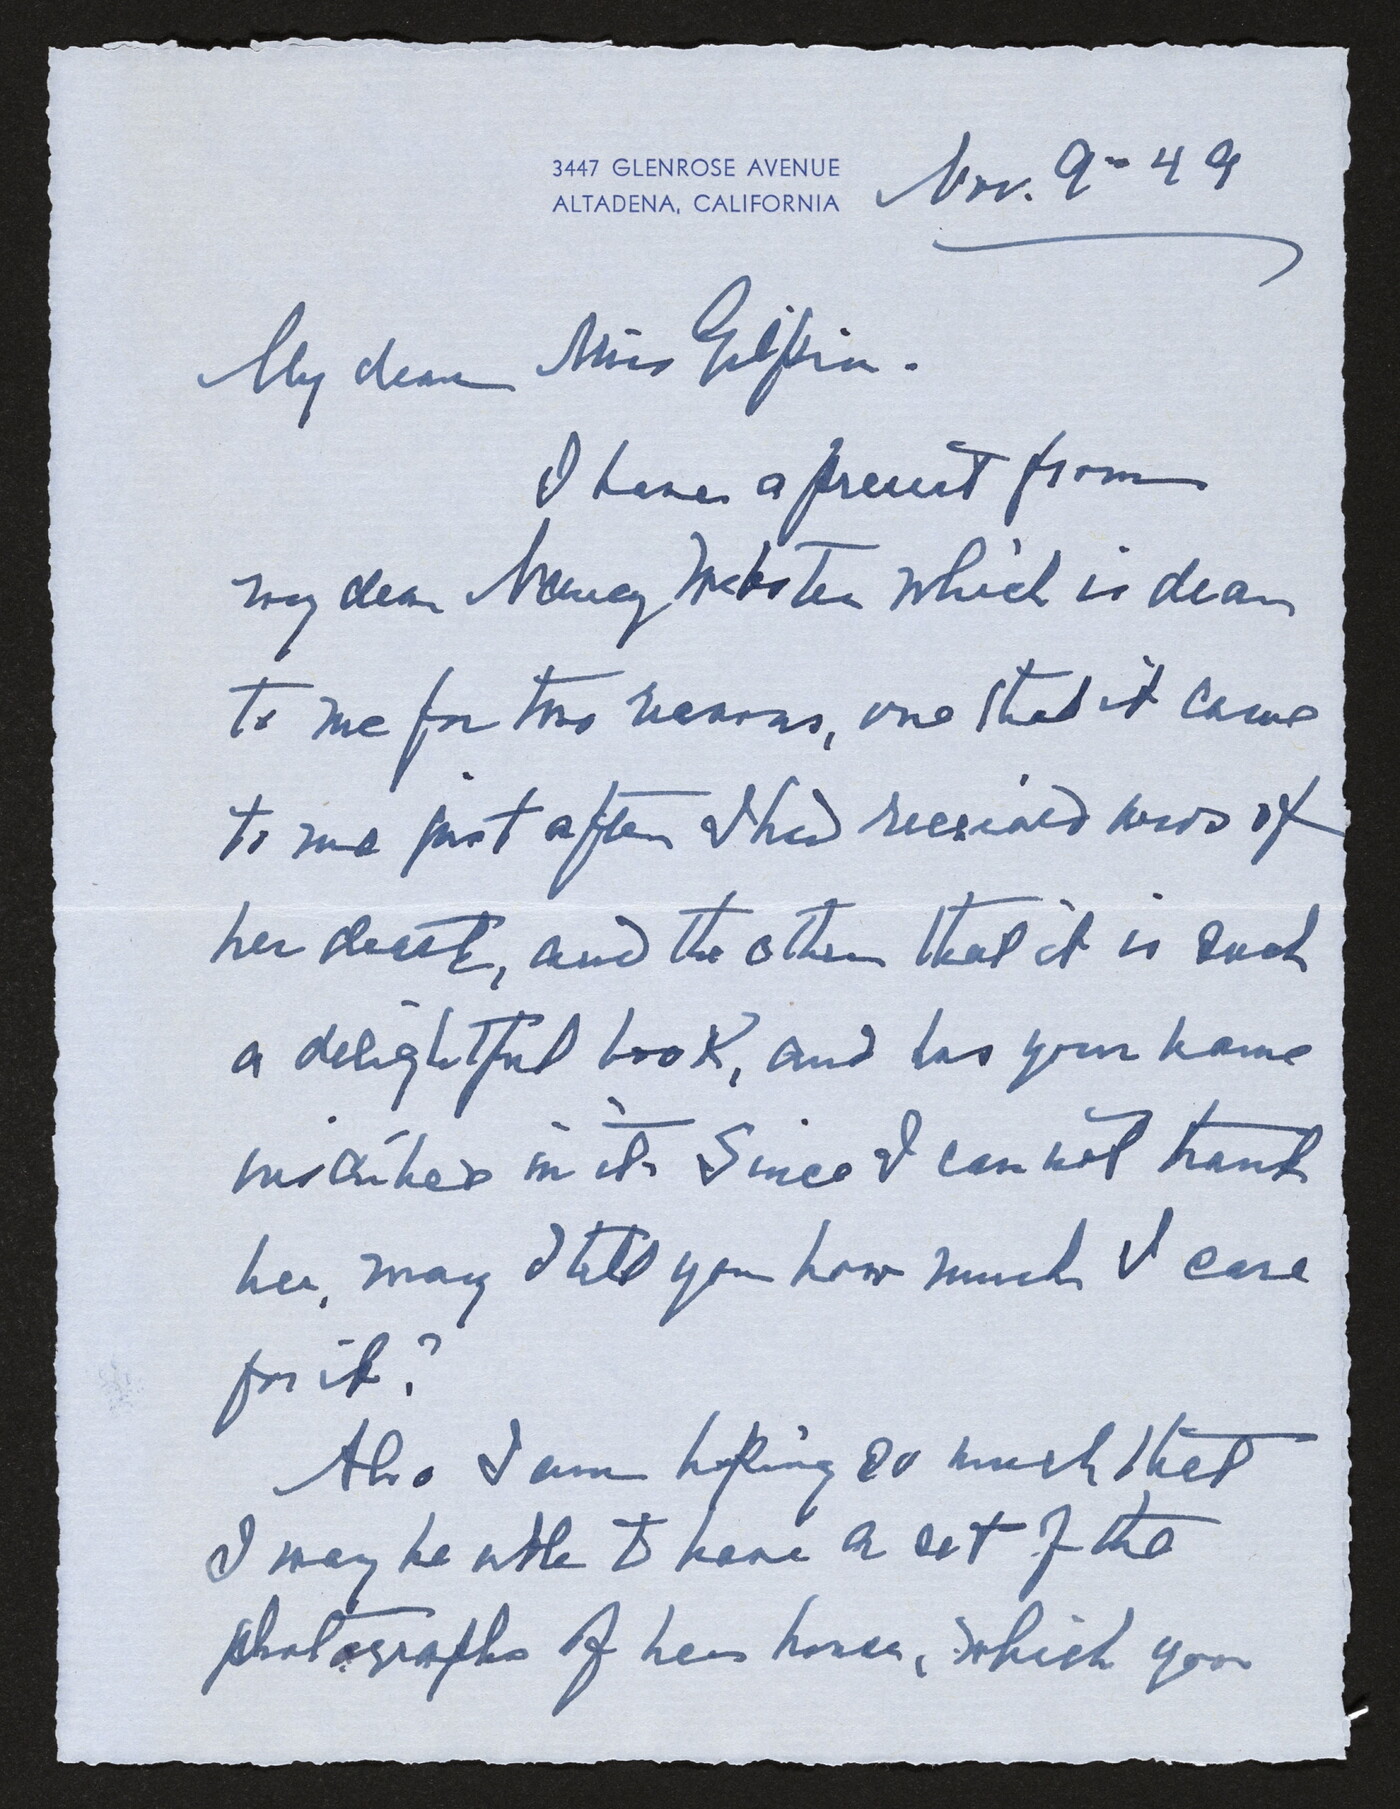 3447 GLENROSE AVENUE
ALTADENA, CALIFORNIA
Nov. 9-49
My dear Miss Gilpin.
I have a present from
my dear Nancy Webster which is dear
to me for two reasons, one that it came
to me just after I had received word of
her death, and the other that it is such
a delightful book, and has your name
inscribed in it. Since I can not thank
her, may I tell you how much I care
for it?
Also I am hoping so much that
I may be able to have a set of the
photographs of her house, which you